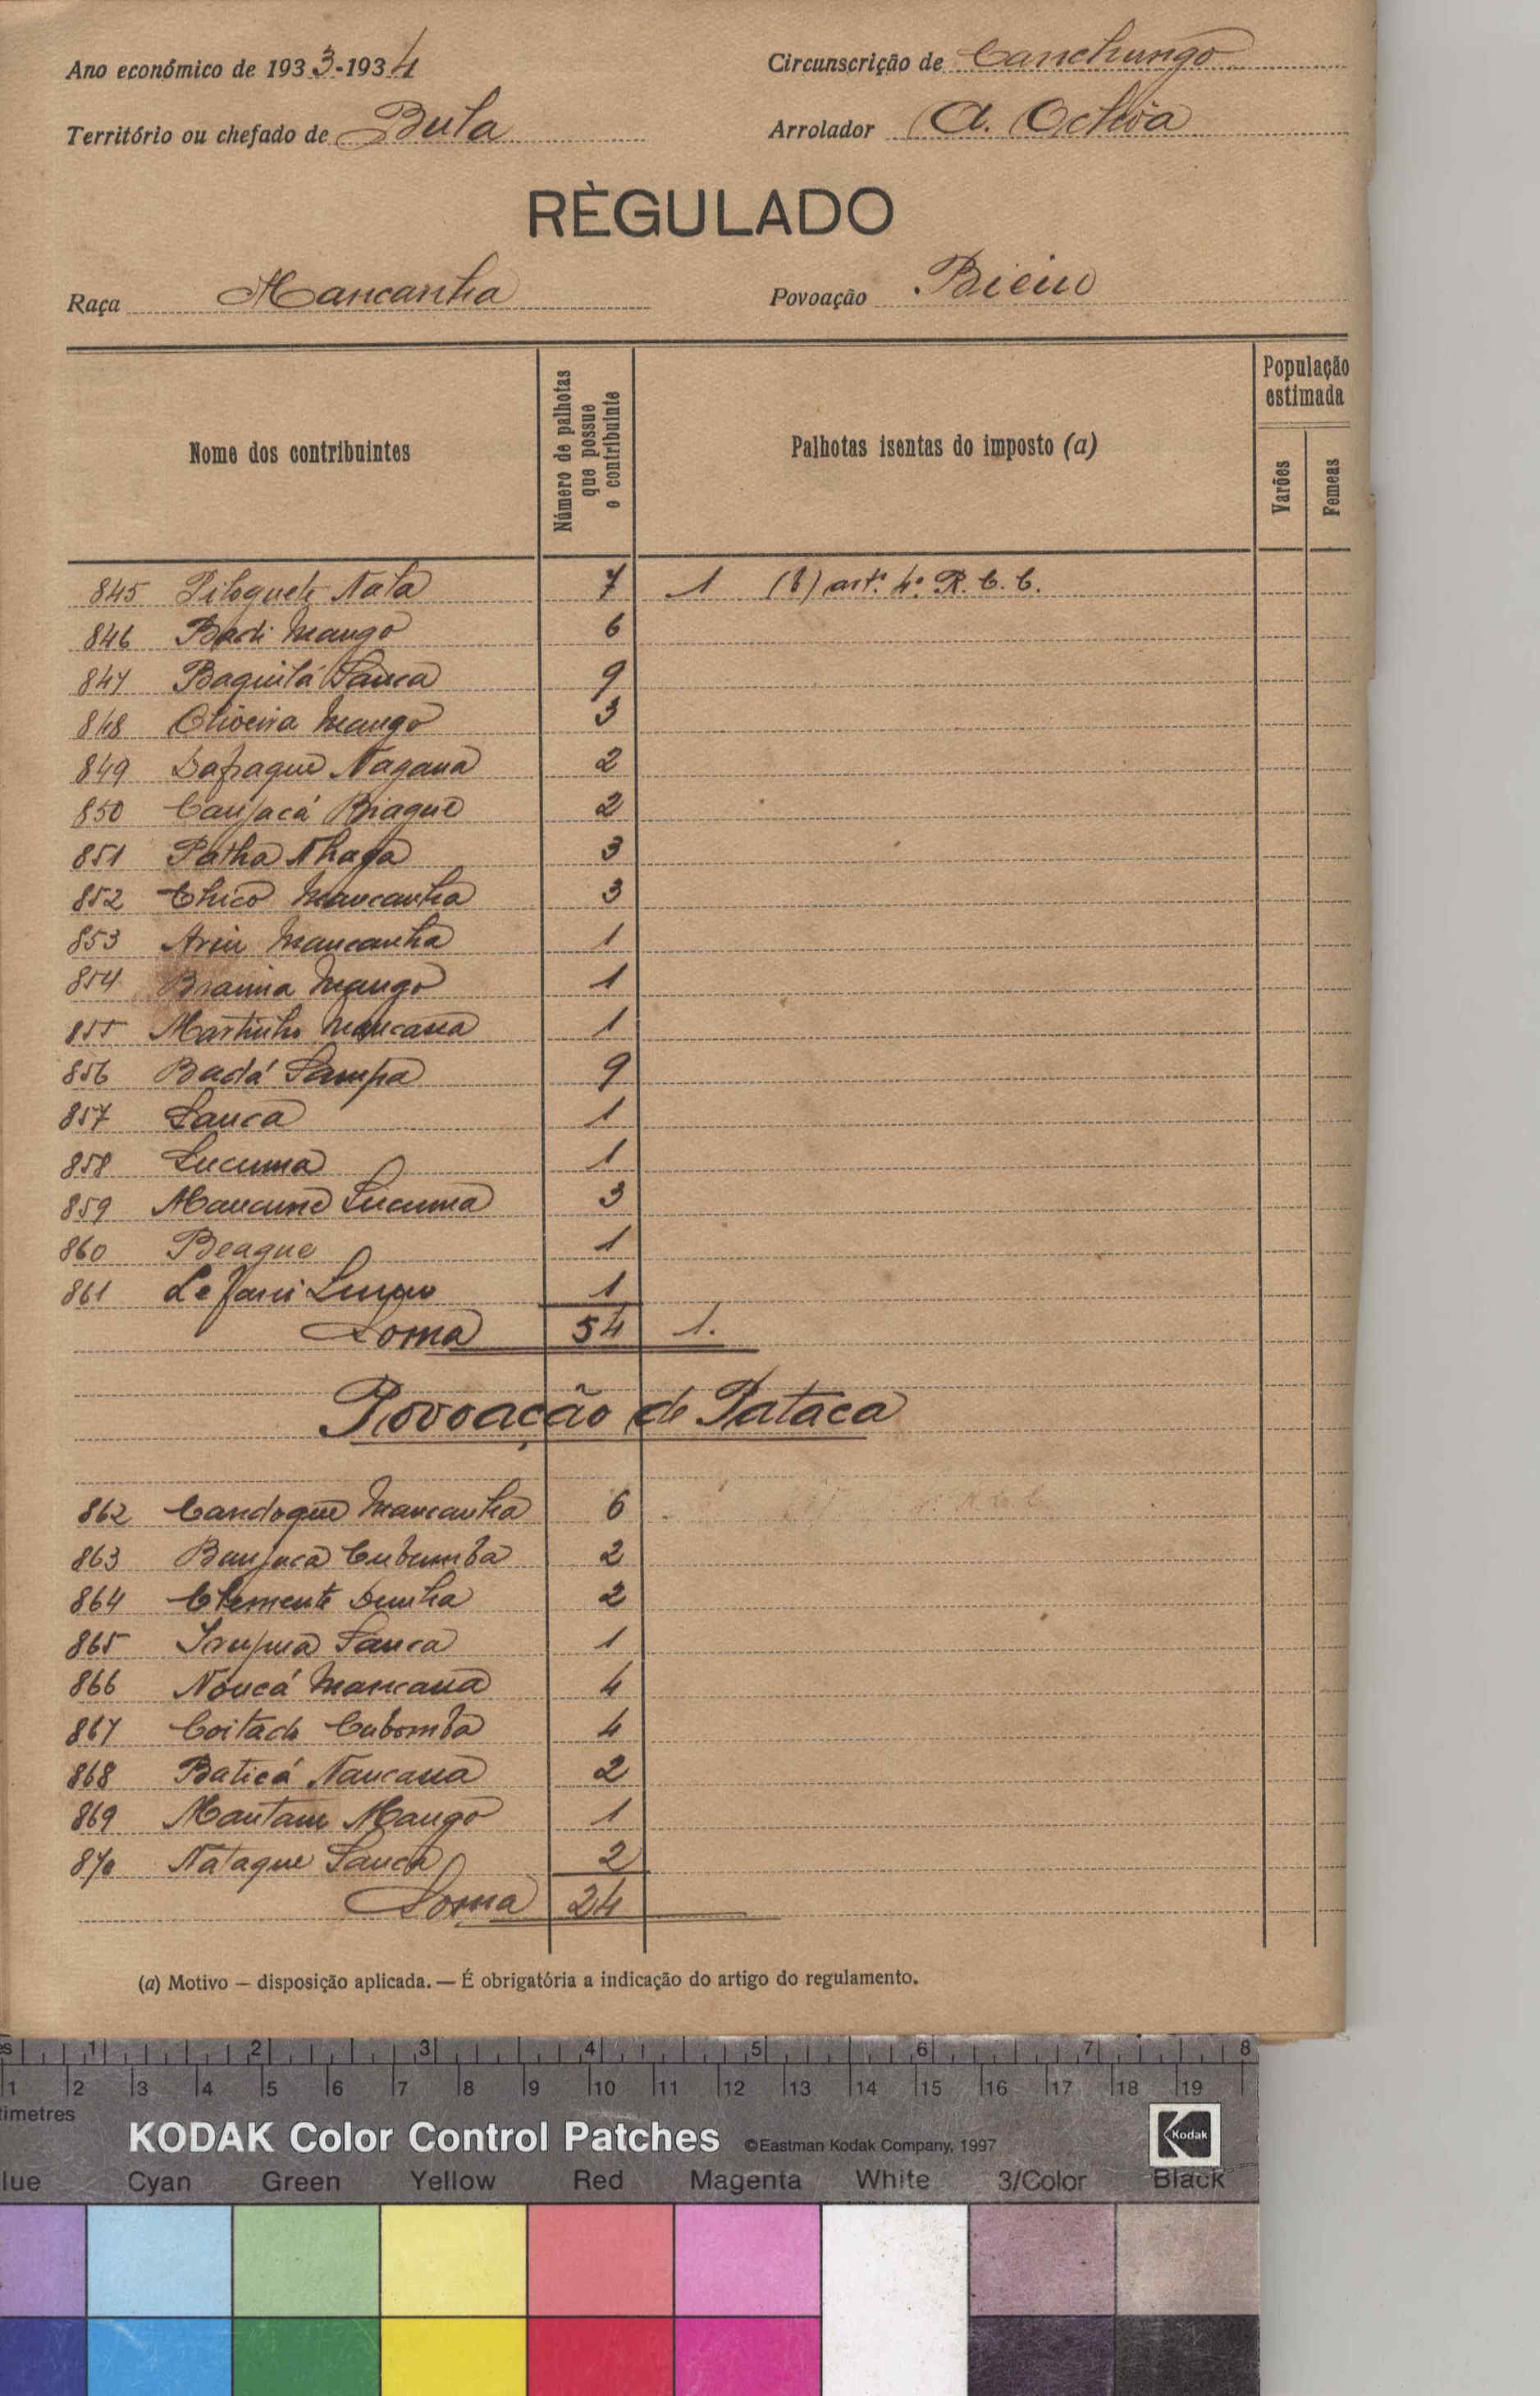 Ano económico de 1933-1934
Circunscrição de Canchungo
Território ou chefado de Bula
Arrolador A. Ochôa
RÈGULADO
Raça Mancanha
Povoação Bieiu
Nome dos contribuintes
Número de palhotas que possue o contribuinte
Palhotas isentas do imposto (a)
População estimada
Varões
Femeas
845 Piloquete Nala 7 1 (b) artº. 4º. R. C. C.
846 Badi Mango 6
847 Baquilá Sanca 9
848 Oliveira Mango 3
849 Dafraque Nagana 2
850 Canjacá Biague 2
851 Patha Nhaga 3
852 Chico Mancanha 3
853 Mancanha 1
854 Braima Mango 1
855 Martinho Mancassa 1
856 Badá Sampa 9
857 Sanca 1
858 Lucuma 1
859 Mancume Lucuma 3
860 Beague 1
861 1
Soma 54 1.
Povoação de Pataca
862 Candoque Mancanha 6
863 Banjaca Cubumba 2
864 Clemente Dunha 2
865 Sanca 1
866 Noucá Mancassa 4
867 Coitado Cubomba 4
868 Baticá Nancassa 2
869 Mantam Mango 1
870 Nataque Sanca 2
Soma 24
(a) Motivo — disposição aplicada. — É obrigatória a indicação do artigo do regulamento.
1 2 3 4 5 6 7 8
1 2 3 4 5 6 7 8 9 10 11 12 13 14 15 16 17 18 19
timetres
KODAK Color Control Patches ©Eastman Kodak Company, 1997 Kodak
lue Cyan Green Yellow Red Magenta White 3/Color Black